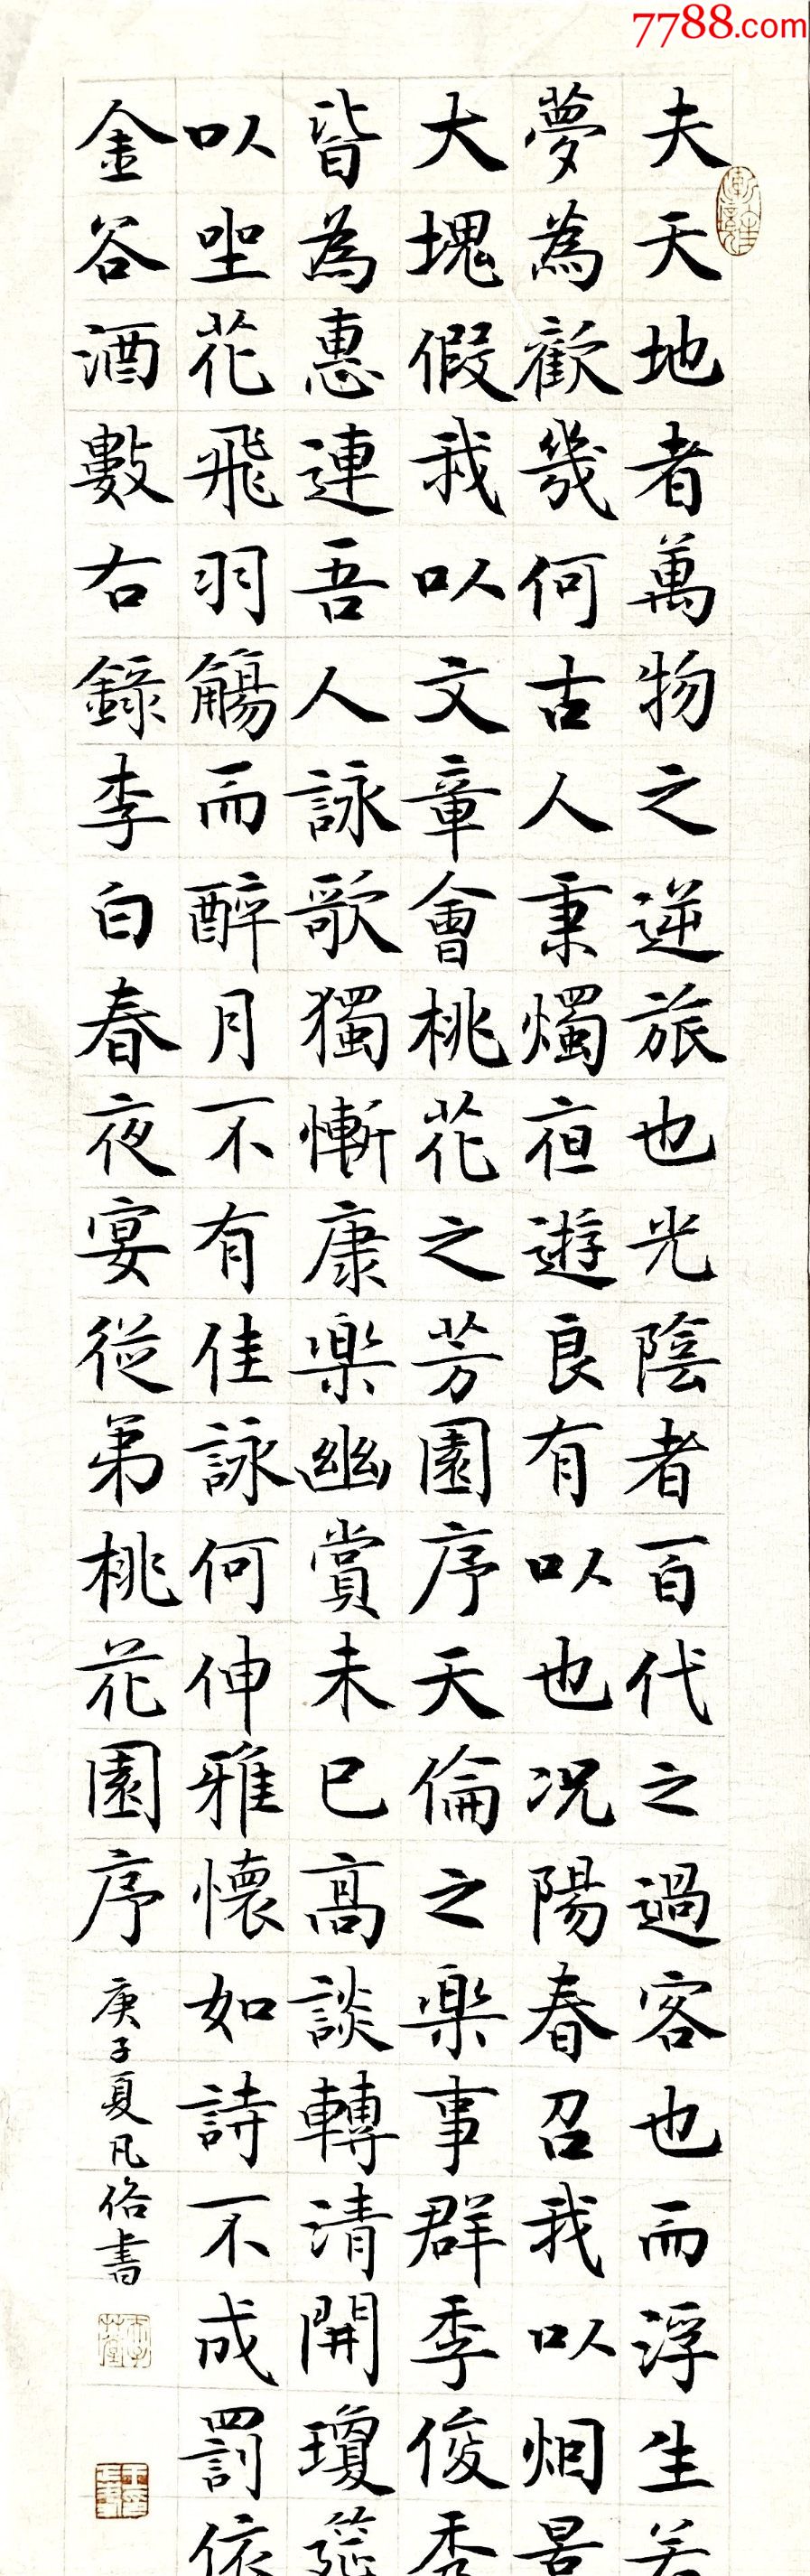 7788.com
夫天地者萬物之逆旅也光陰者百代之過客也而浮生若
夢為歡幾何古人秉燭夜遊良有以也况陽春召我以烟景
大塊假我以文章會桃花之芳園序天倫之樂事群季俊秀
皆為惠連吾人詠歌獨慚康樂幽賞未已高談轉清開瓊筵
以坐花飛羽觴而醉月不有佳詠何伸雅懷如詩不成罰依
金谷酒數右錄李白春夜宴從弟桃花園序
庚子夏凡俗書